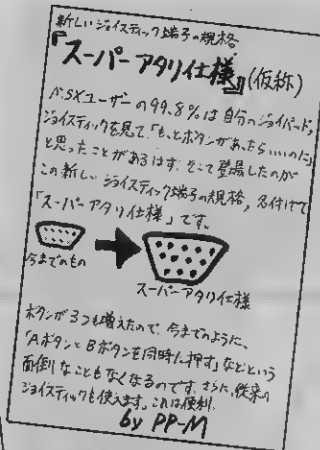 新しいジョイスティック端子の規格
『スーパーアタリ仕様』(仮称)
MSXユーザーの99.8%は自分のジョイパード,
ジョイスティックを見て、「もっとボタンがあったら……いいのに」
と思ったことがあるはず。そこで登場したのが
この新しいジョイスティック端子の規格,名付けて
「スーパーアタリ仕様」です。
今までのもの
スーパーアタリ仕様
ボタンが3つも増えたので、今までのように、
「AボタンとBボタンを同時に押す」などという
面倒なこともなくなるのです。さらに、従来の
ジョイスティックも使えます。これは便利。
by PP-M